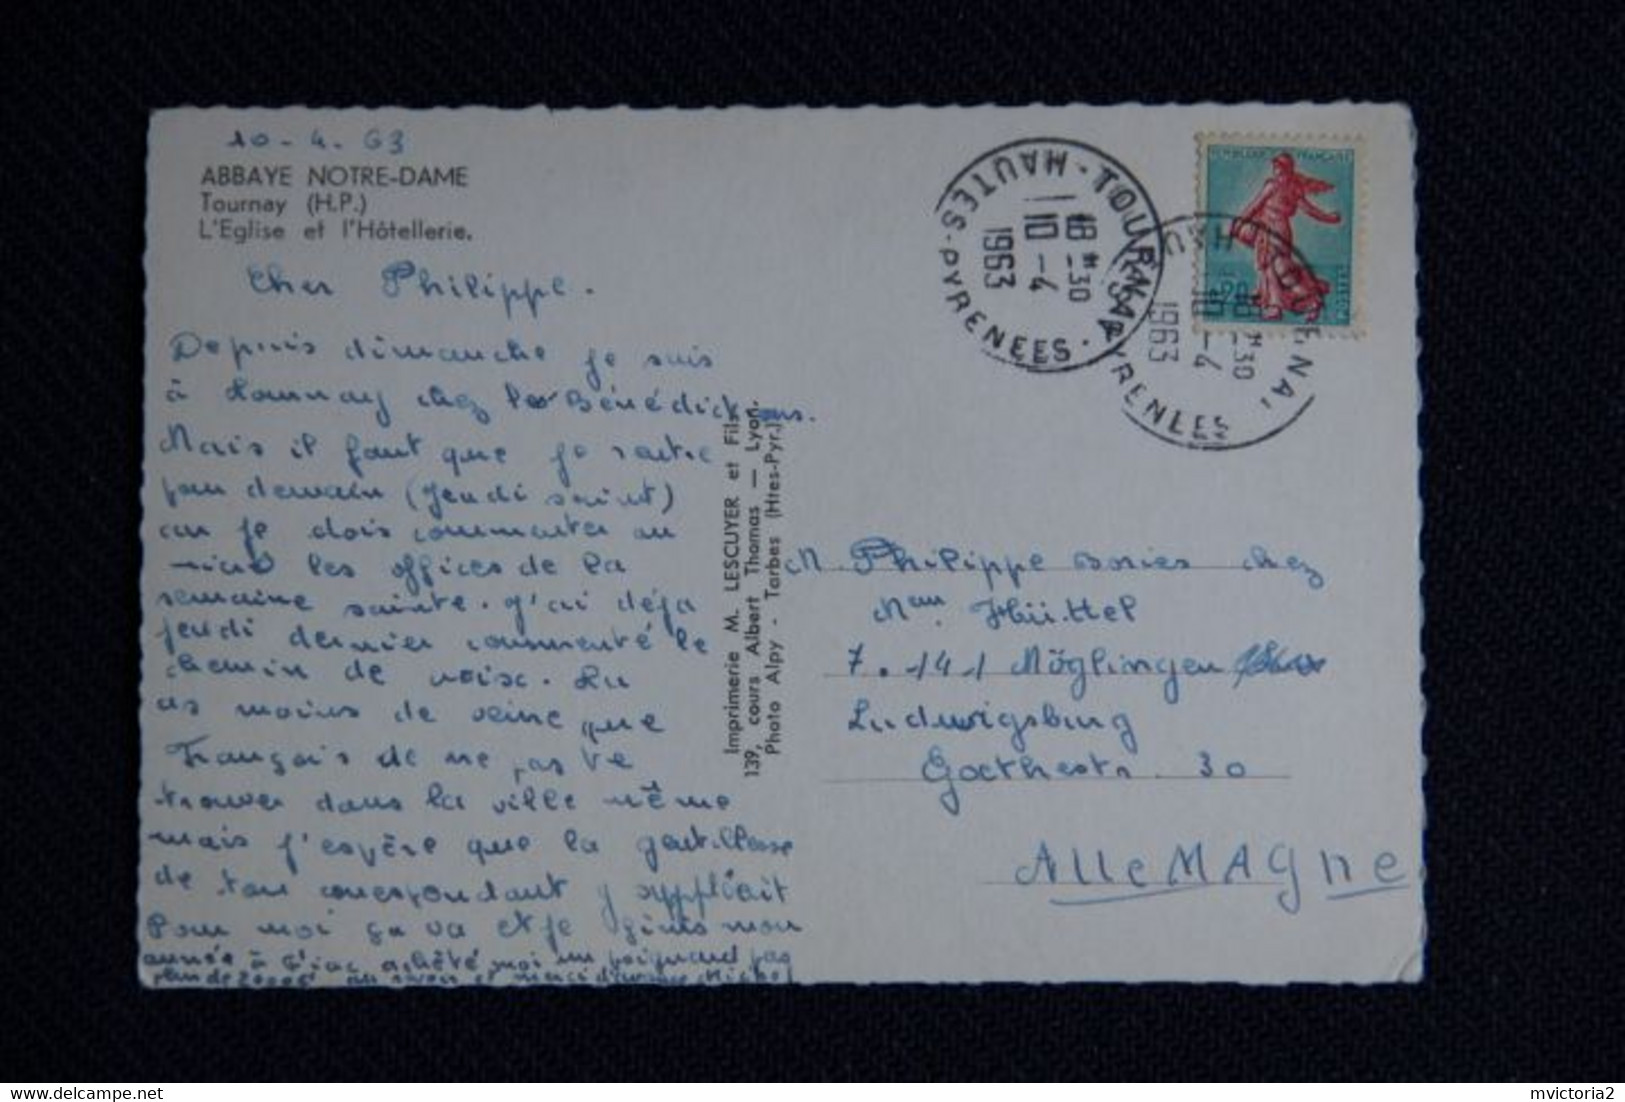 10-4.63
ABBAYE NOTRE-DAME
Tournay (H.P.)
L'Eglise et l'Hôtellerie.
Cher Philippe.
Depuis dimanche je suis
à Tournay chez les Bénédictins.
Mais il faut que je rentre
pour demain (jeudi saint)
car je dois commenter au
micro les offices de la
semaine sainte. J'ai déjà
jeudi dernier commenté le
chemin de croix. Tu
as moins de veine que
François de ne pas te
trouver dans la ville même
mais j'espère que la gentillesse
de ton correspondant y suppléait
Pour moi ça va et je finis mon
année à achète moi un poignard pas
plus de 2000F au revoir et merci d'avance Michel
Imprimerie M. LESCUYER et Fils
139, cours Albert Thomas — Lyon.
Photo Alpy - Tarbes (Htes-Pyr.)
TOURNAY
HAUTES-PYRENEES
18H30
10-4
1963
TOURNAY
HAUTES-PYRENEES
18H30
10-4
1963
REPUBLIQUE FRANÇAISE
0,20
POSTES
M. Philippe Bories chez
Mme Hüttel
7.141 Möglingen
Ludwigsburg
Goethestr. 30
ALLEMAGNE
mvictoria2